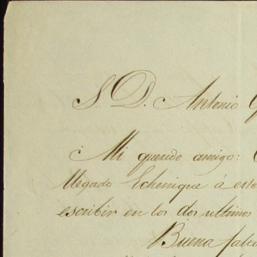 S. D. Antonio
Mi querido amigo:
llegado Echenique á este
escribir en los dos ultimos
Buena falta